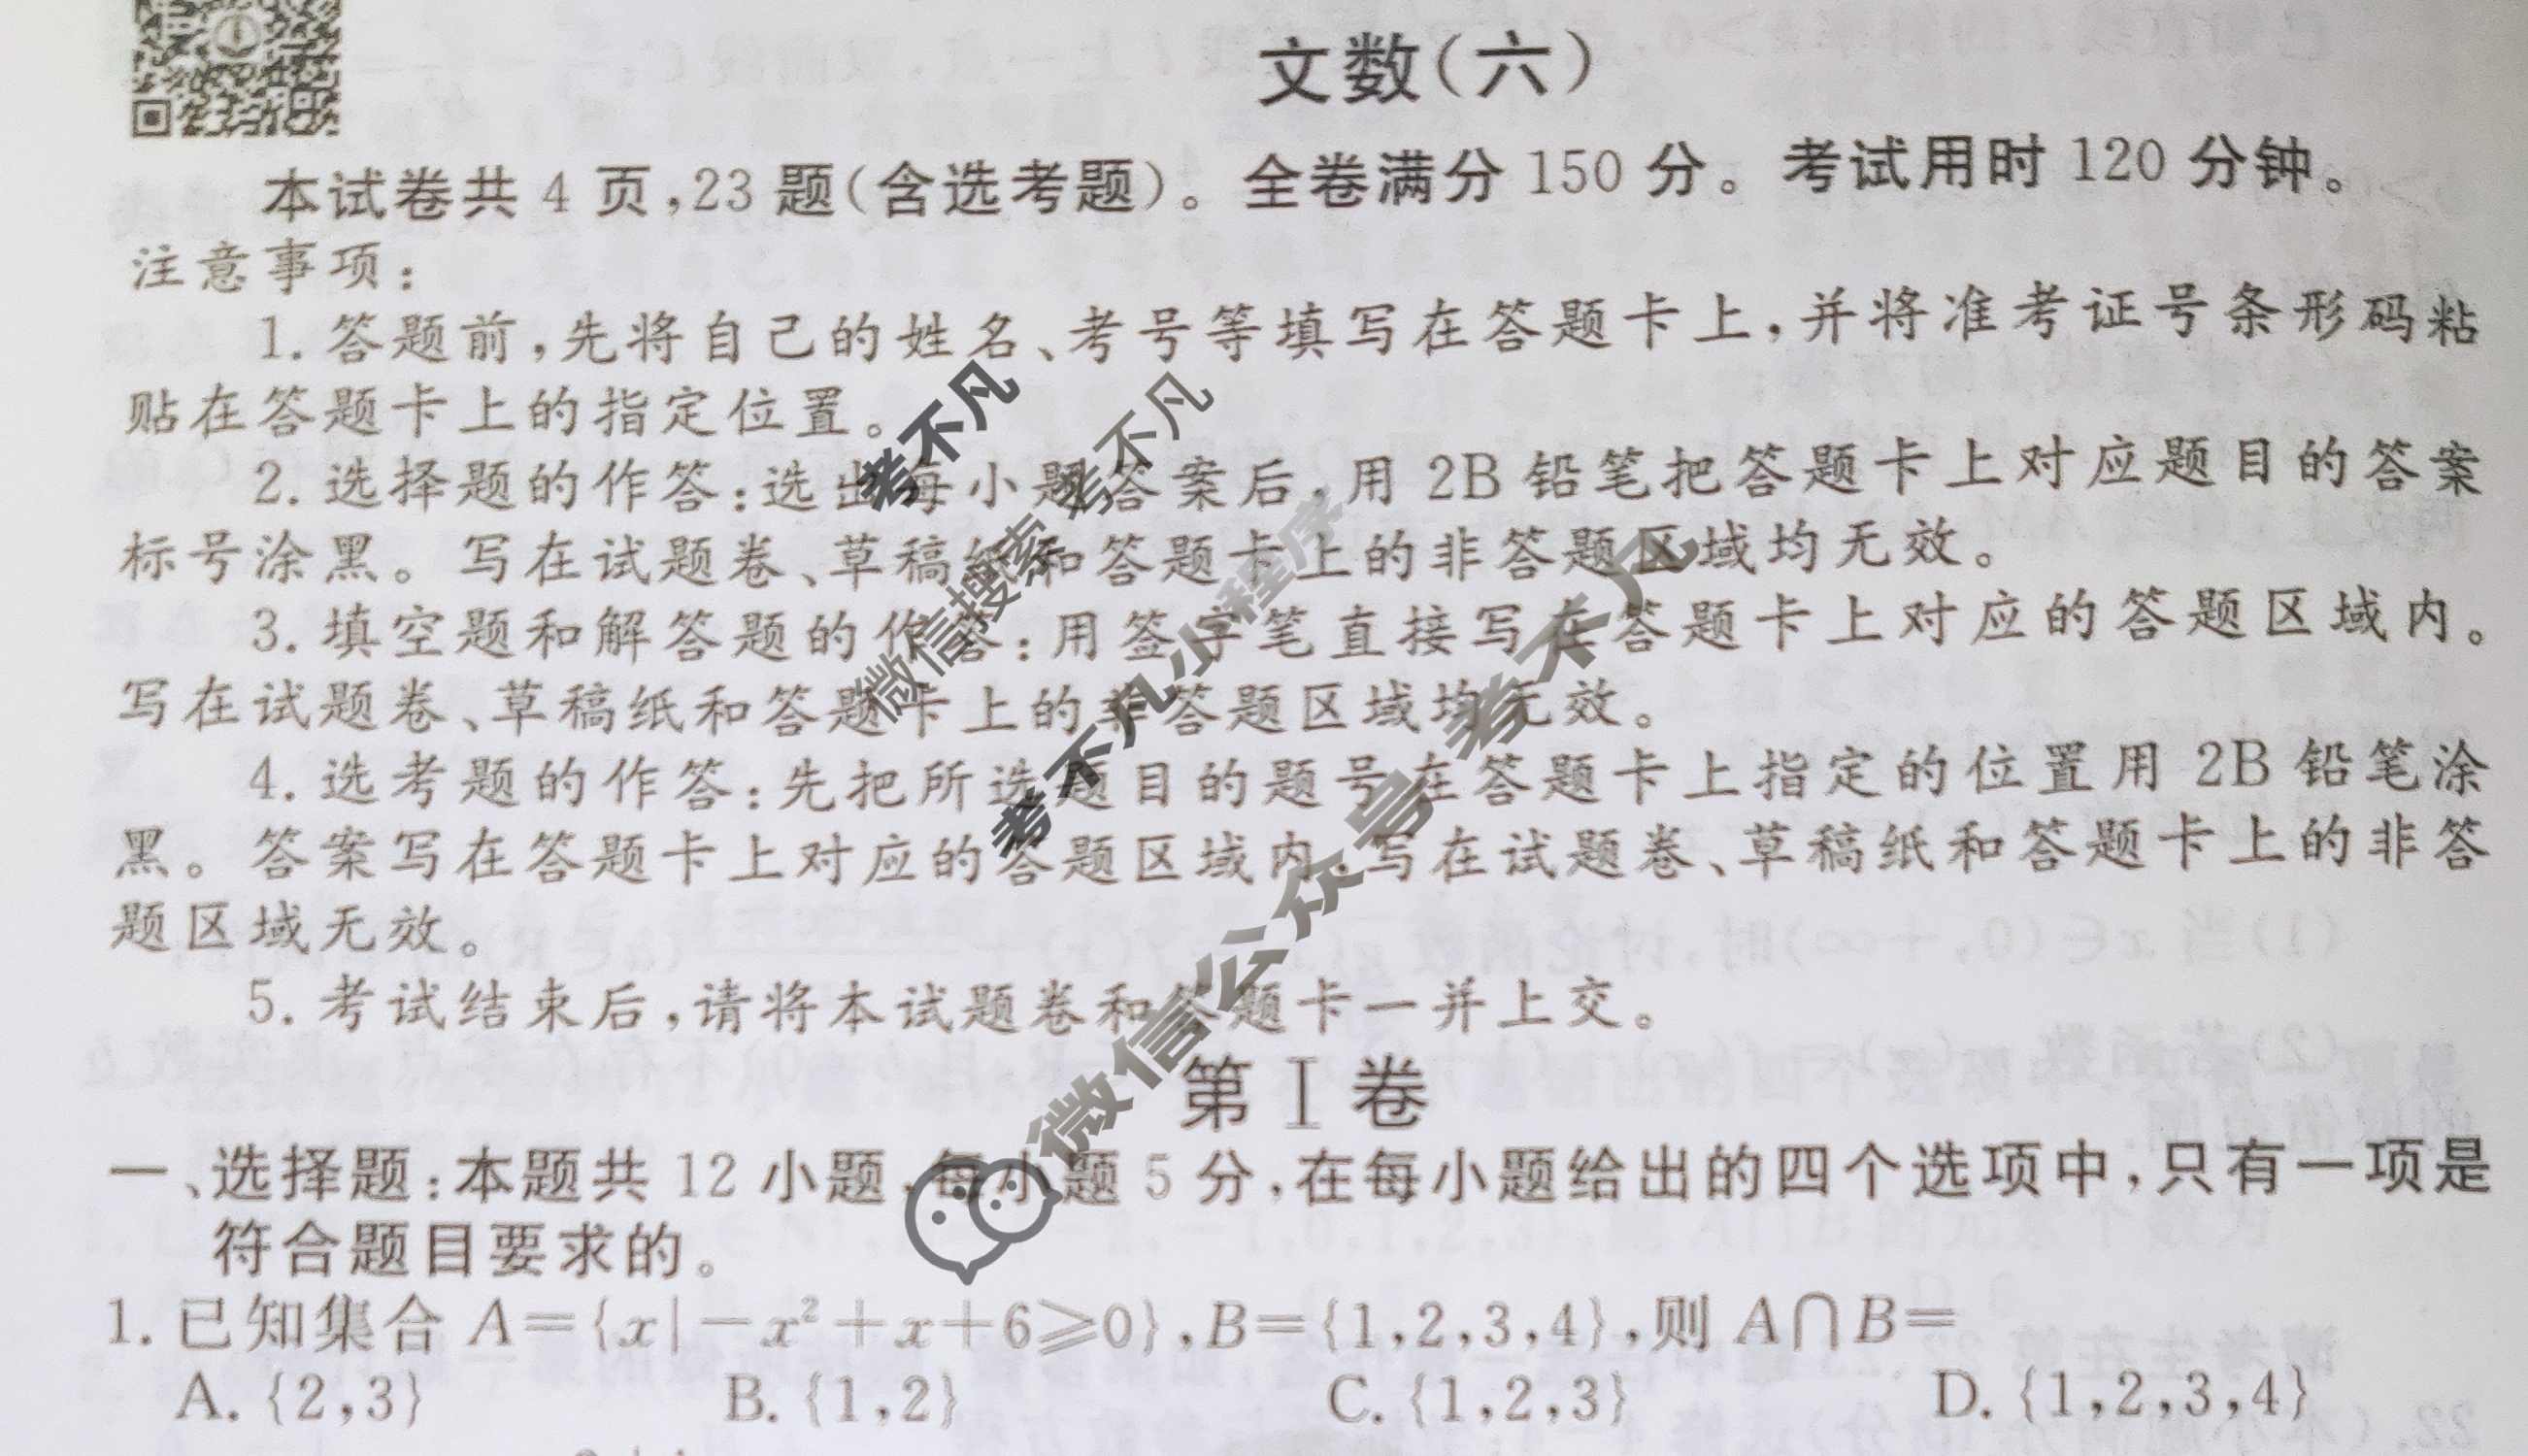 文数(六)
本试卷共 4 页,23 题(含选考题)。全卷满分 150 分。考试用时 120 分钟。
注意事项:
1. 答题前,先将自己的姓名、考号等填写在答题卡上,并将准考证号条形码粘
贴在答题卡上的指定位置。
2. 选择题的作答:选出每小题答案后,用 2B 铅笔把答题卡上对应题目的答案
标号涂黑。写在试题卷、草稿纸和答题卡上的非答题区域均无效。
3. 填空题和解答题的作答:用签字笔直接写在答题卡上对应的答题区域内。
写在试题卷、草稿纸和答题卡上的非答题区域均无效。
4. 选考题的作答:先把所选题目的题号在答题卡上指定的位置用 2B 铅笔涂
黑。答案写在答题卡上对应的答题区域内,写在试题卷、草稿纸和答题卡上的非答
题区域无效。
5. 考试结束后,请将本试题卷和答题卡一并上交。
第 I 卷
一、选择题:本题共 12 小题,每小题 5 分,在每小题给出的四个选项中,只有一项是
符合题目要求的。
1. 已知集合 A={x|-x²+x+6≥0},B={1,2,3,4},则 A∩B=
A. {2,3} B. {1,2} C. {1,2,3} D. {1,2,3,4}
考不凡
微信搜索 考不凡
考不凡小程序
微信公众号 考不凡